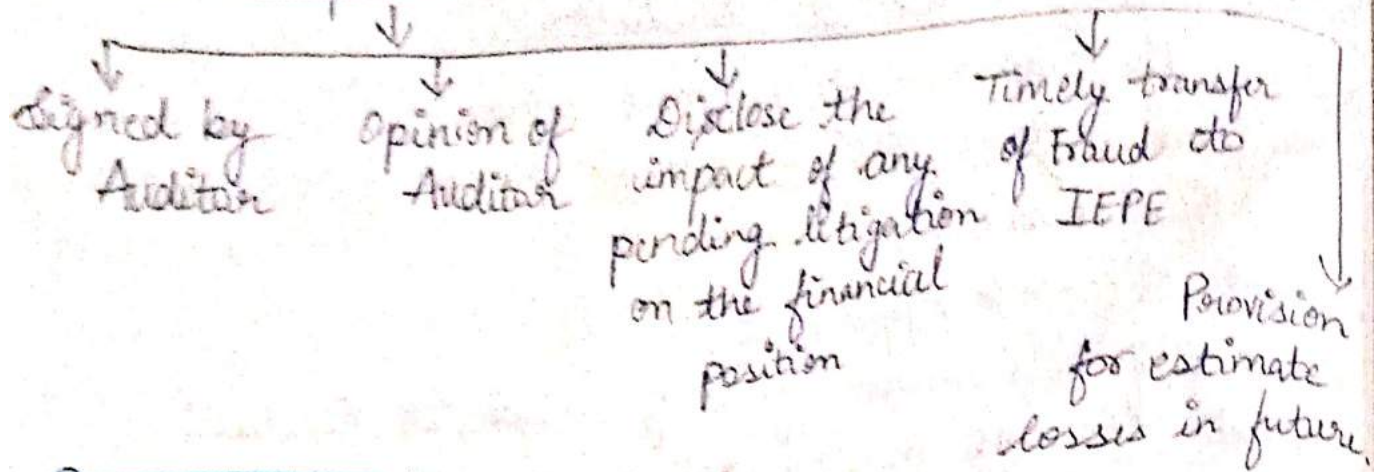 Signed by
Auditor
Opinion of
Auditor
Disclose the
impact of any
pending litigation
on the financial
position
Timely transfer
of Fraud to
IEPE
Provision
for estimate
losses in future.